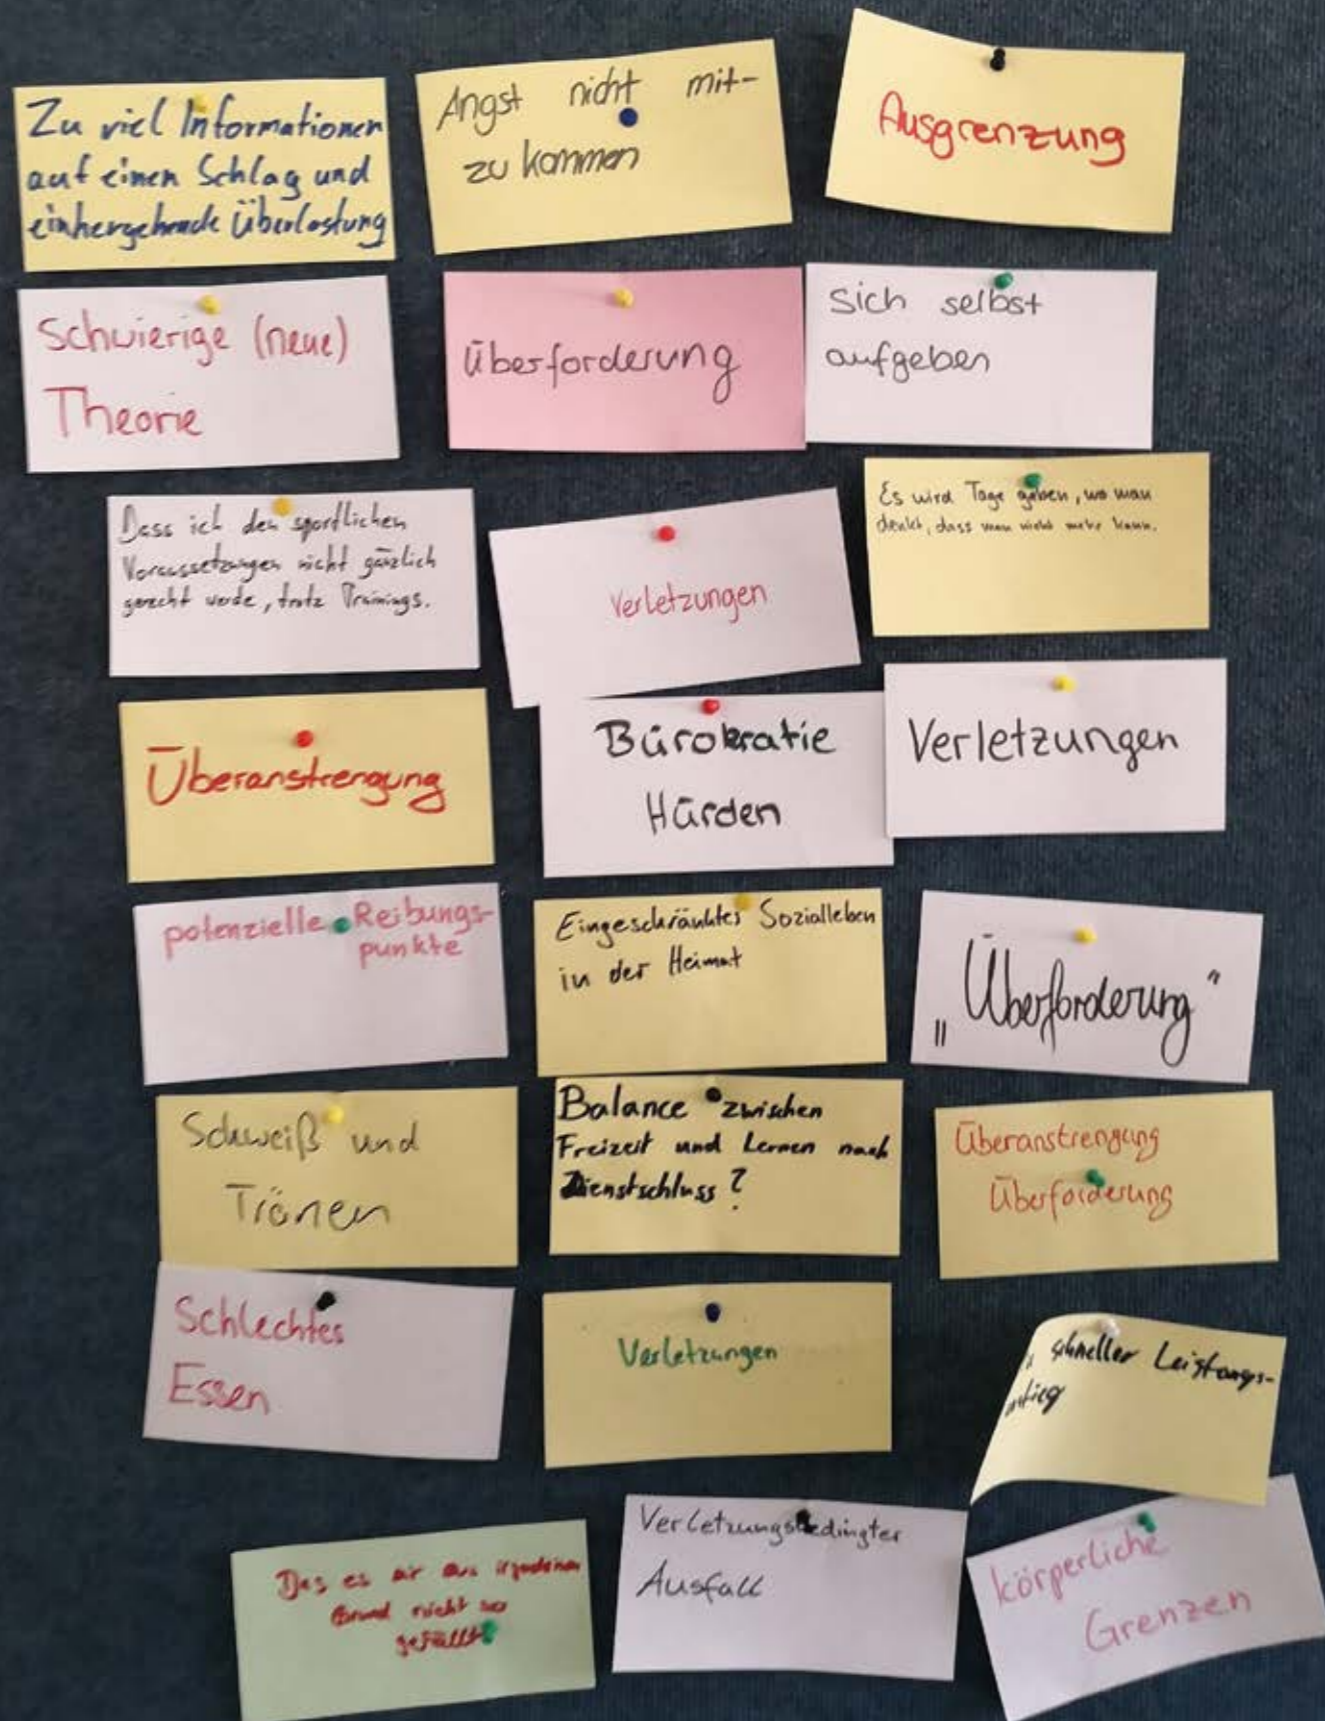 Zu viel Informationen
auf einen Schlag und
einhergehende Überlastung
Angst nicht mit-
zu kommen
Ausgrenzung
Schwierige (neue)
Theorie
Überforderung
Sich selbst
aufgeben
Dass ich den sportlichen
Voraussetzungen nicht gänzlich
gerecht werde, trotz Trainings.
Verletzungen
Es wird Tage geben, wo man
denkt, dass man nicht mehr kann.
Überanstrengung
Bürokratie
Hürden
Verletzungen
potenzielle Reibungs-
punkte
Eingeschränktes Sozialleben
in der Heimat
„Überforderung“
Schweiß und
Tränen
Balance zwischen
Freizeit und Lernen nach
Dienstschluss?
Überanstrengung
Überforderung
Schlechtes
Essen
Verletzungen
schneller Leistungs-
Das es mir aus irgendeinen
Grund nicht so
gefällt
Verletzungsbedingter
Ausfall
körperliche
Grenzen